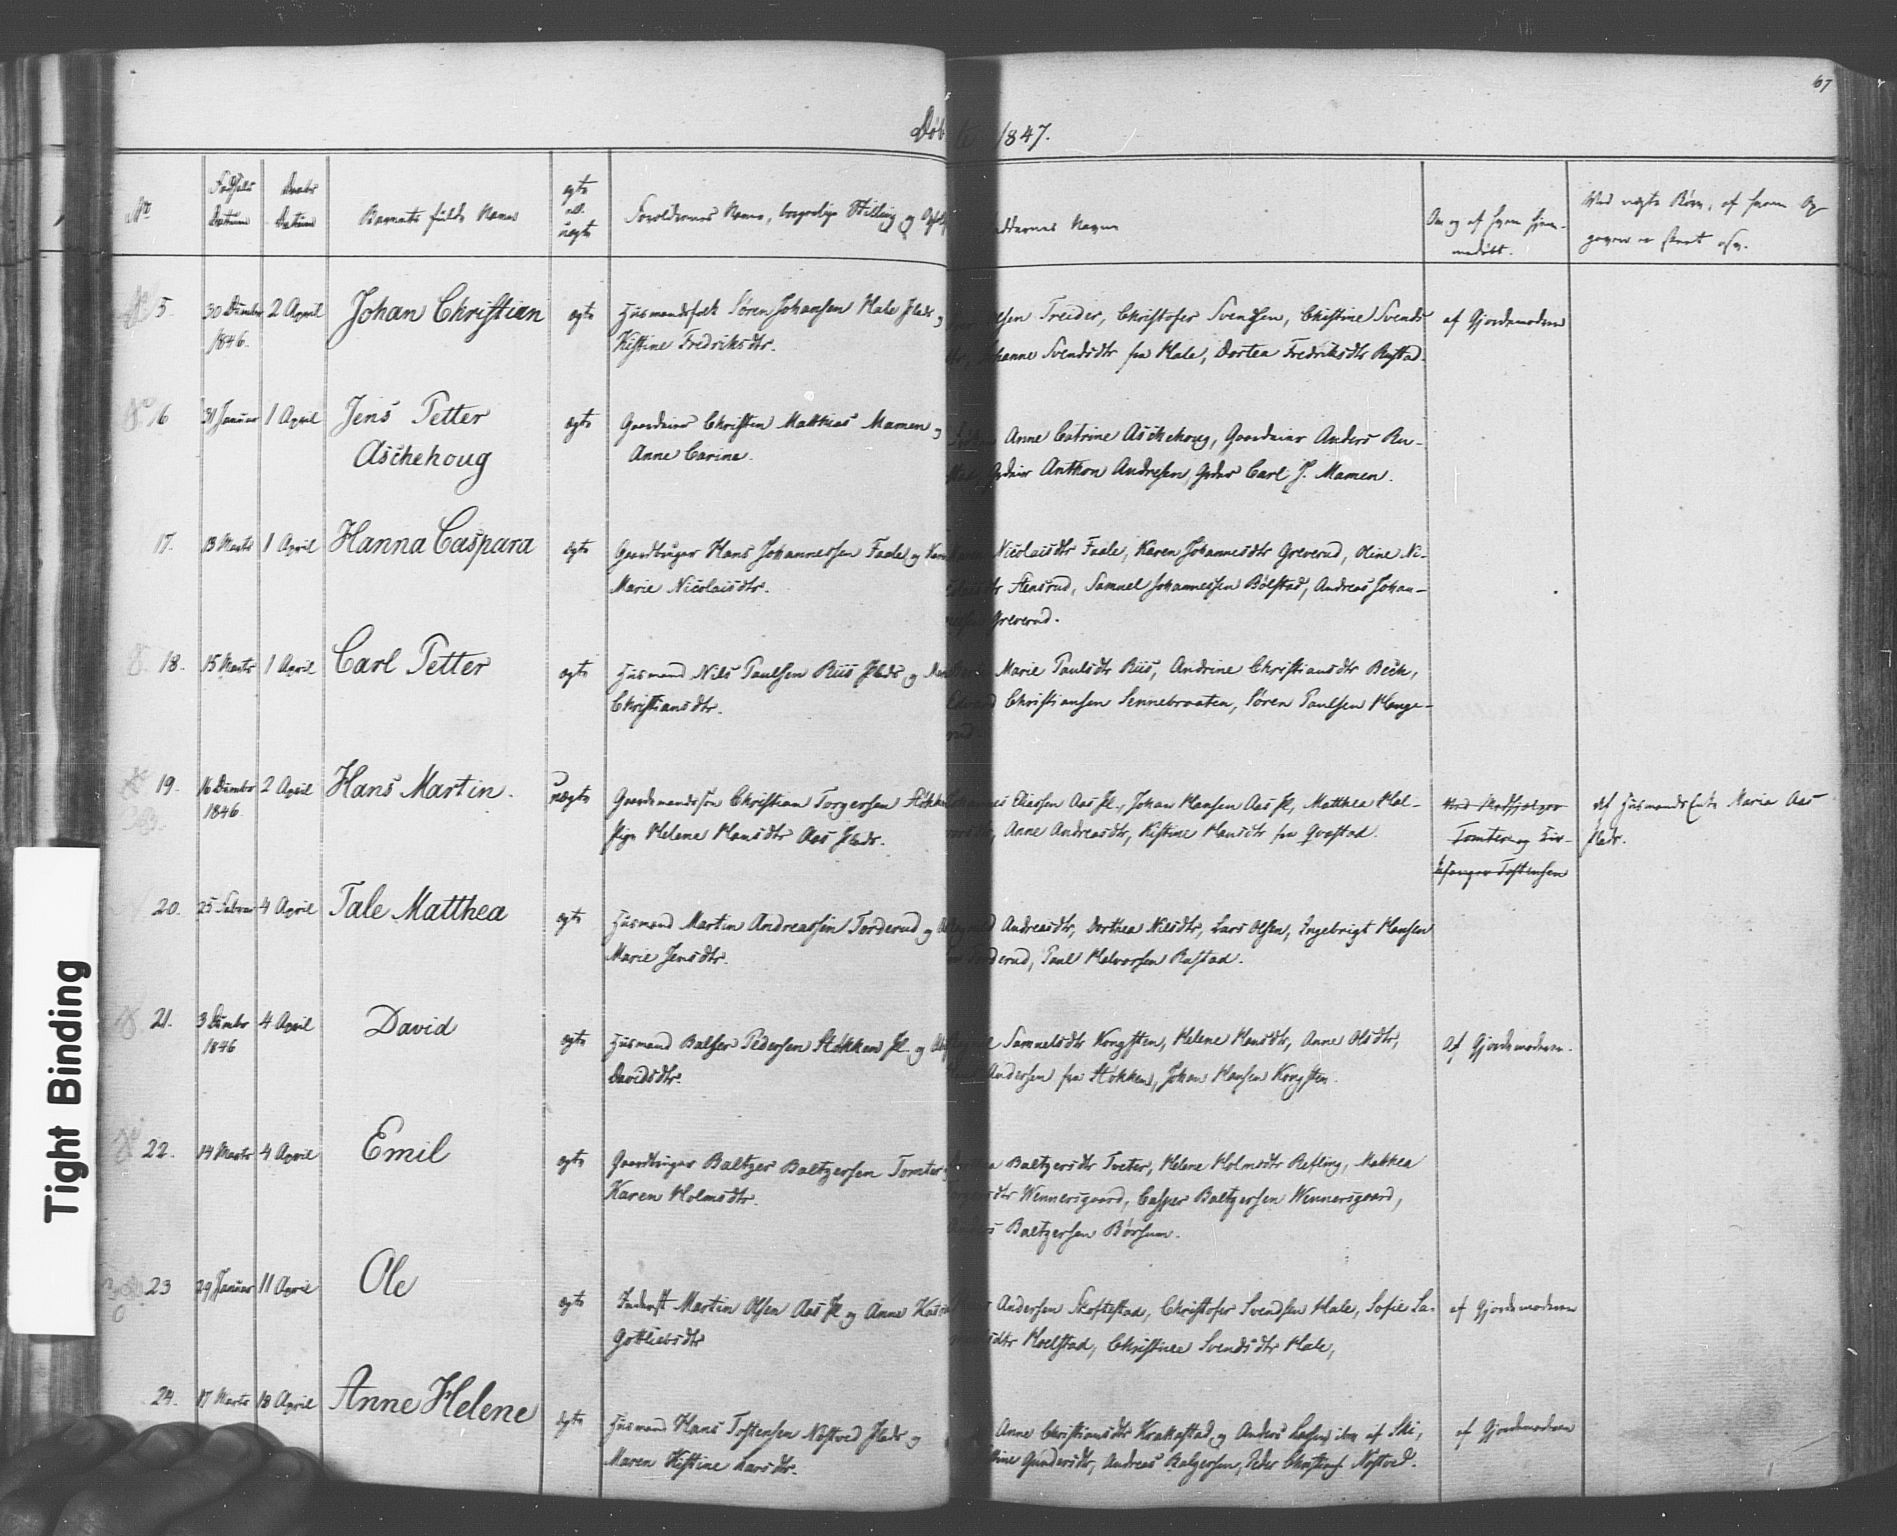 67
Døbte 1847.
No
Fødsels Datum
Daabs Datum
Barnets fulde Navn
ægte el. uægte
Forældrenes Navn, borgerlige Stilling og
Faddernes Navne
Om og af hvem hjemmedøbt.
Ved uægte Børn, af hvem Opgaven er skeet osv.
5 30 Decembr 2 April Johan Christian ægte Huusmandsfolk Søren Johansen Hale Plads og
1846. Kistine Fredriksdtr.
Olsen Treider, Christofer Svendsen, Christine Svends-
dtr, Johanne Svendsdtr fra Hale, Dortea Fredriksdtr Rustad.
af Gjordemoderen
16 31 Januar 1 April Jens Petter ægte Gaardeier Christen Matthias Mamen og
Aschehoug Anne Carine.
Anne Catrine Aschehoug, Gaardeier Anders
Anthon Andresen, Carl J. Mamen.
17. 13 Marts 1 April Hanna Caspara ægte Gaardbruger Hans Johannessen Faale og
Marie Nicolaisdtr.
Nicolaisdtr Faale, Karen Johannesdtr Greverud, Oline Ni-
colaisdtr Stensrud, Samuel Johannessen Bølstad, Andreas Johan-
nesen Greverud.
18. 15 Marts 1 April Carl Petter ægte Huusmand Nils Paulsen Riis Plads og
Christiansdtr.
Marie Paulsdtr Riis, Andrine Christiansdtr Beck,
Edvard Christiansen Sennebraaten, Søren Paulsen Hauge-
rud.
19. 16 Decembr 2 April Hans Martin. Uægte Gaardmandssøn Christian Torgersen
1846 Pige Helene Hansdtr Aas Plads.
Johannes Eliassen Aas Pl., Johan Hansen Aas Pl, Matthea Hal-
vorsdtr, Anne Andreasdtr, Kistine Hansdtr fra Qvæstad.
Tomter og Kir-
kesanger Tostensen
af Huusmands Enke Maria Aas
Plads.
20. 25 Februar 4 April Tale Matthea ægte Huusmand Martin Andreassen Torderud og
Marie Jensdtr.
Andreasdtr, Dorthea Nilsdtr, Lars Olsen, Ingebrigt Hansen
Torderud, Paul Halvorsen Rustad.
21. 3 Decembr 4 April David ægte Huusmand Balser Pedersen Støkken Pl. og
1846 Davidsdtr.
Samuelsdtr Kongsten, Helene Hansdtr, Anne Olsdtr,
Andersen fra Støkken, Johan Hansen Kongsten.
Af Gjordemoderen.
22. 14 Marts 4 April Emil ægte Gaardbruger Baltzer Baltzersen Tomter
Karen Holmsdtr.
Baltzersdtr Tveter, Helene Holmsdtr Refling, Mathea
Wennersgaard, Casper Baltzersen Wennersgaard,
Anders Baltzersen Børsum.
23 29 Januar 11 April Ole ægte Inderst Martin Olsen Aas Pl og Anne
Gottliebsdtr
Andersen Skoftestad, Christofer Svendsen Hale, Sofie La-
Moelstad, Christine Svendsdtr Hale,
af Gjordemoderen
24. 17 Marts 18 April Anne Helene ægte Huusmand Hans Tostensen Næstved Plads og
Maren Kistine Larsdtr.
Anne Christiansdtr Krakestad og Anders Larsen af Ski,
Gundersdtr, Andreas Balzersen, Peder Christians. Næstved.
af Gjordemoderen
Tight Binding